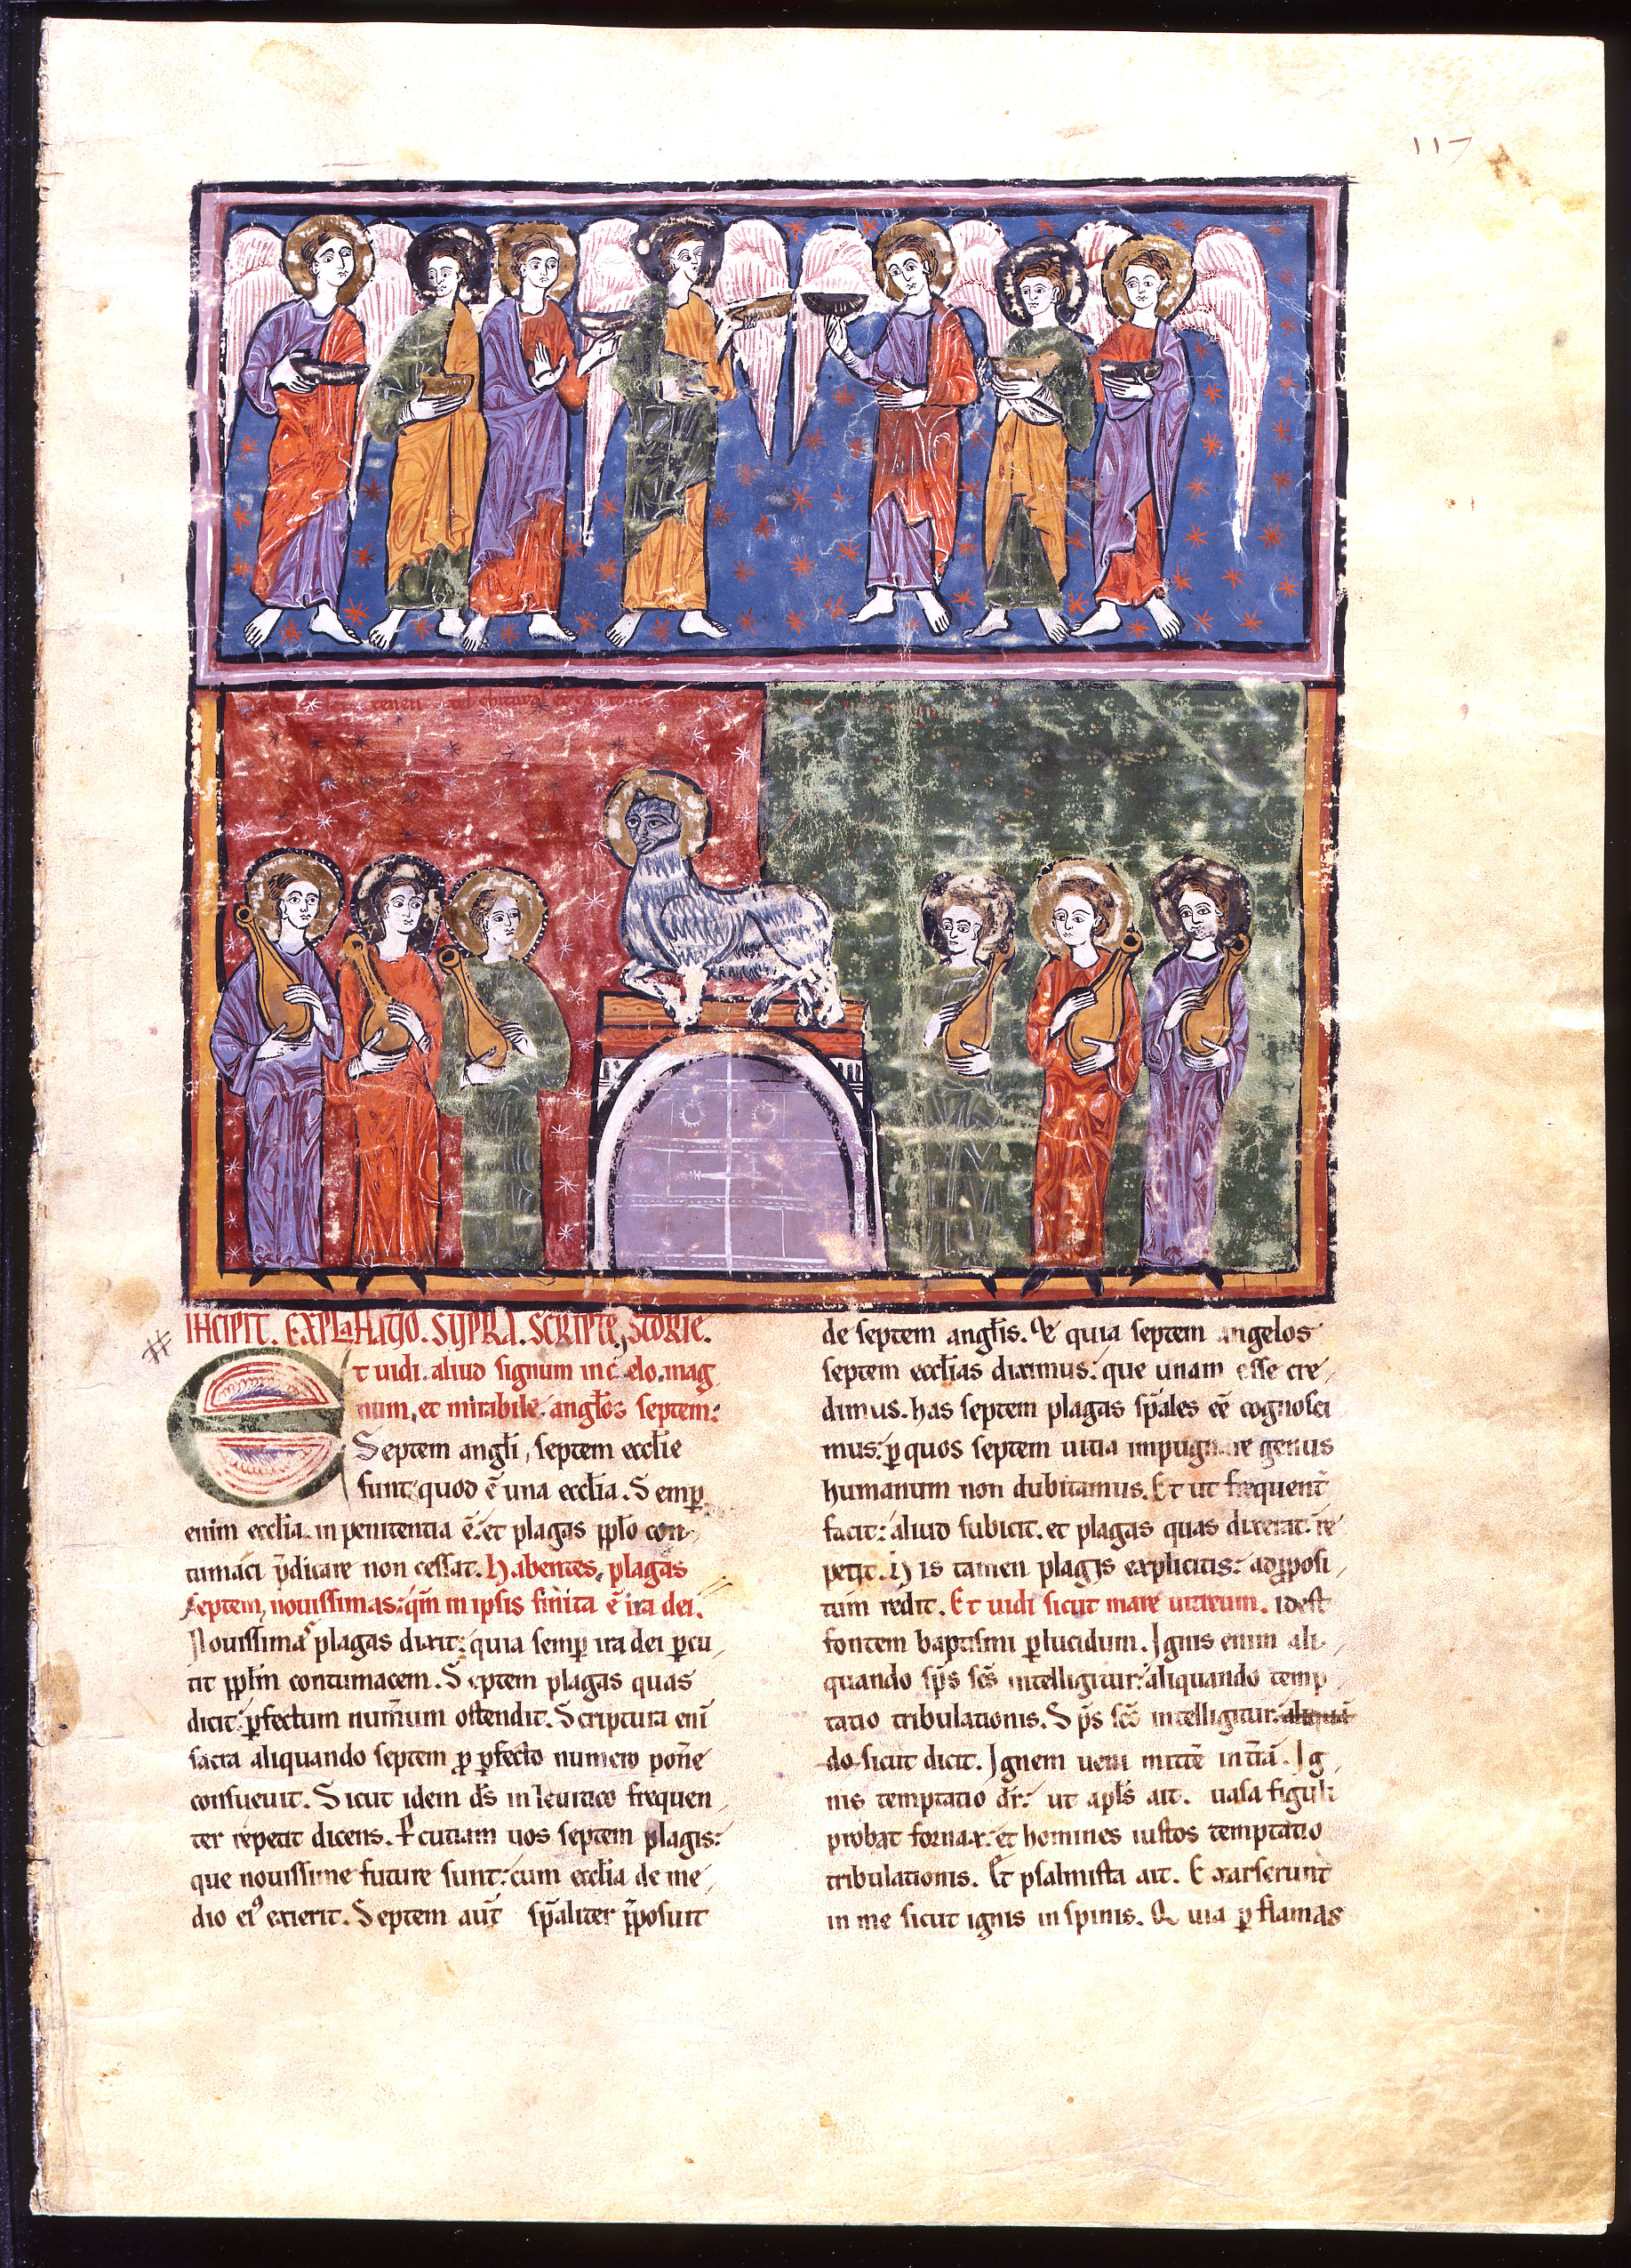 117
INCIPIT. EXPLaNATIO. SUPRA. SCRIPTE, STORIE.
Et uidi. aliud signum in celo. mag
num, et mirabile. anglos septem:
Septem angli, septem ecclie
sunt quod ē una ecclia. Semp̱
enim ecclia. in penitentia ē. et plagas pp̱lo con-
tumaci p̄dicare non cessat. Habentes, plagas
septem, nouissimas: qm̄ in ipsis finita ē ira dei.
Nouissimas plagas dixit: quia semp̱ ira dei p̱cu
tit pp̱lm contumacem. Septem plagas quas
dicit: p̱fectum num̄um ostendit. Scriptura eni
sacra aliquando septem p̱ p̱fecto numero pon̄e
consueuit. Sicut idem d̄s in leuitico frequen
ter repetit dicens. P̱cutiam uos septem plagis:
que nouissime future sunt: cum ecclia de me
dio eiꝰ exierit. Septem aut̄ sp̄aliter p̄posuit
de septem anglis. Et quia septem angelos
septem ecclias diximus: que unam esse cre
dimus. has septem plagas sp̄ales eē cognosci
mus: p̱ quos septem uitia impugnare genus
humanum non dubitamus. Et ut frequent̄
facit: aliud subicit. et plagas quas dixerat. re
petit. His tamen plagis explicitis: ad p̱posi
tum redit. Et uidi sicut mare uitreum. idest
fontem baptismi p̱lucidum. Ignis enim ali
quando sp̄s sc̄s intelligitur: aliquando temp
tatio tribulationis. Sp̄s sc̄s intelligitur. aliquā
do sicut dicit. Ignem ueni mitt̄e in t̄rā. Ig
nis temptatio dr̄: ut apl̄s ait. uasa figuli
probat fornax. et homines iustos temptatio
tribulationis. Et psalmista ait. Exarserunt
in me sicut ignis in spinis. Quia p̱ flamas